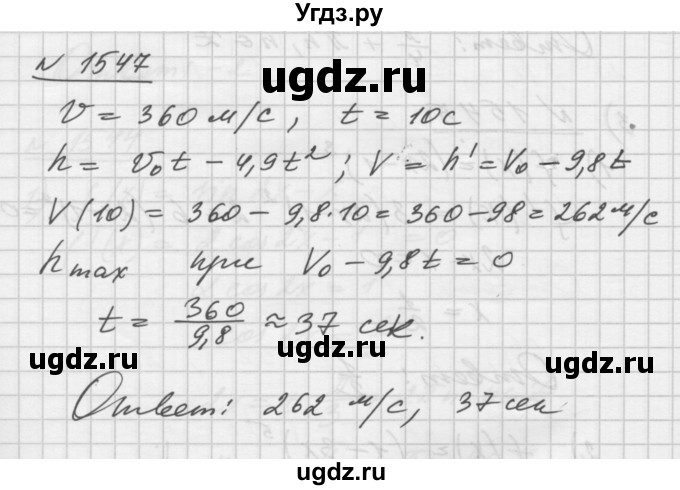 Угдз.ру
N 1547
ugdz.ru
v = 360 м/с, t = 10с
h = v₀t − 4,9t²; V = h' = V₀ − 9,8t
V(10) = 360 − 9,8·10 = 360 − 98 = 262 м/с
h max при V₀ − 9,8t = 0
t = 360/9,8 ≈ 37 сек.
ugdz.ru
Ответ: 262 м/с, 37 сек
ugdz.ru
ugdz.ru